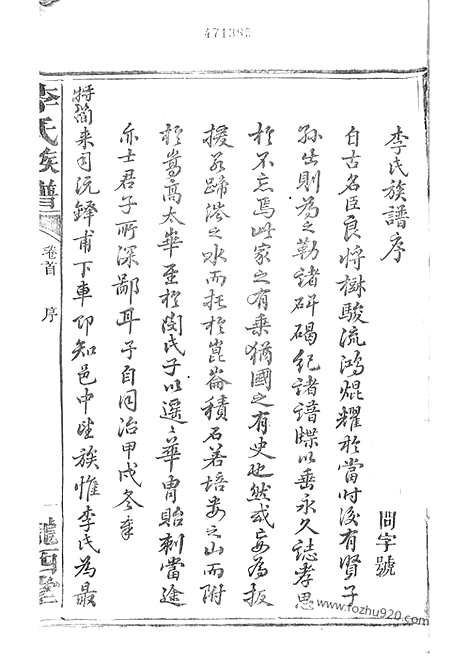 471385
李氏族譜序
問字號
自古名臣良將樹駿流鴻焜耀於當時後有賢子
孫出則為之勒諸碑碣紀諸譜牒以垂永久誌孝思
於不忘焉此家之有乘猶國之有史也然或妄為扳
援若蹄涔之水而托於崑崙積石若培婁之山而附
於嵩高太華至於閔氏子以遥遥華胄貽刺當途
亦士君子所深鄙耳予自同治甲戌冬奉
特簡来司沅鐸甫下車即知邑中望族惟李氏為最
李氏族譜
卷首
序
一
www.fozhu920.com